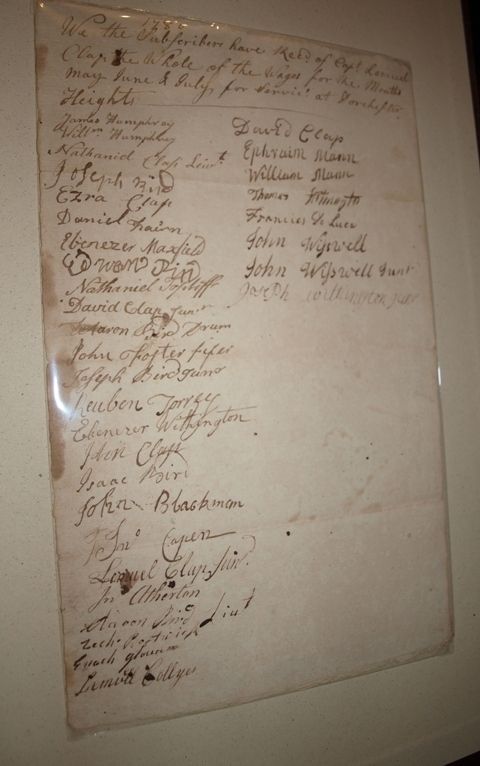 We the Subscribers have Recd. of Capt Lemuel
Clap the Whole of the Wages for the Months
May June & July, for Service at Dorchester
Heights
James Humphray
Willm Humphry
Nathaniel Clap Liewt
Joseph Bird
Ezra Clap
Daniel
Ebenezer Maxfield
Edward Bird
Nathaniel Topliff
David Clap Junr
Aaron Bird Drum
John Foster fifer
Joseph Bird Junr
Reuben Torrey
Ebenezer Withington
John Clap
Isaac Bird
John Blackman
Jno Capen
Lemuel Clap Junr.
Jno Atherton
Aaron Bird Liut
Enoch
Lemuel Collyer
David Clap
Ephraim Mann
William Mann
Thomas
Francies De Luce
John Wiswell
John Wiswell Junr
Joseph Withington Junr